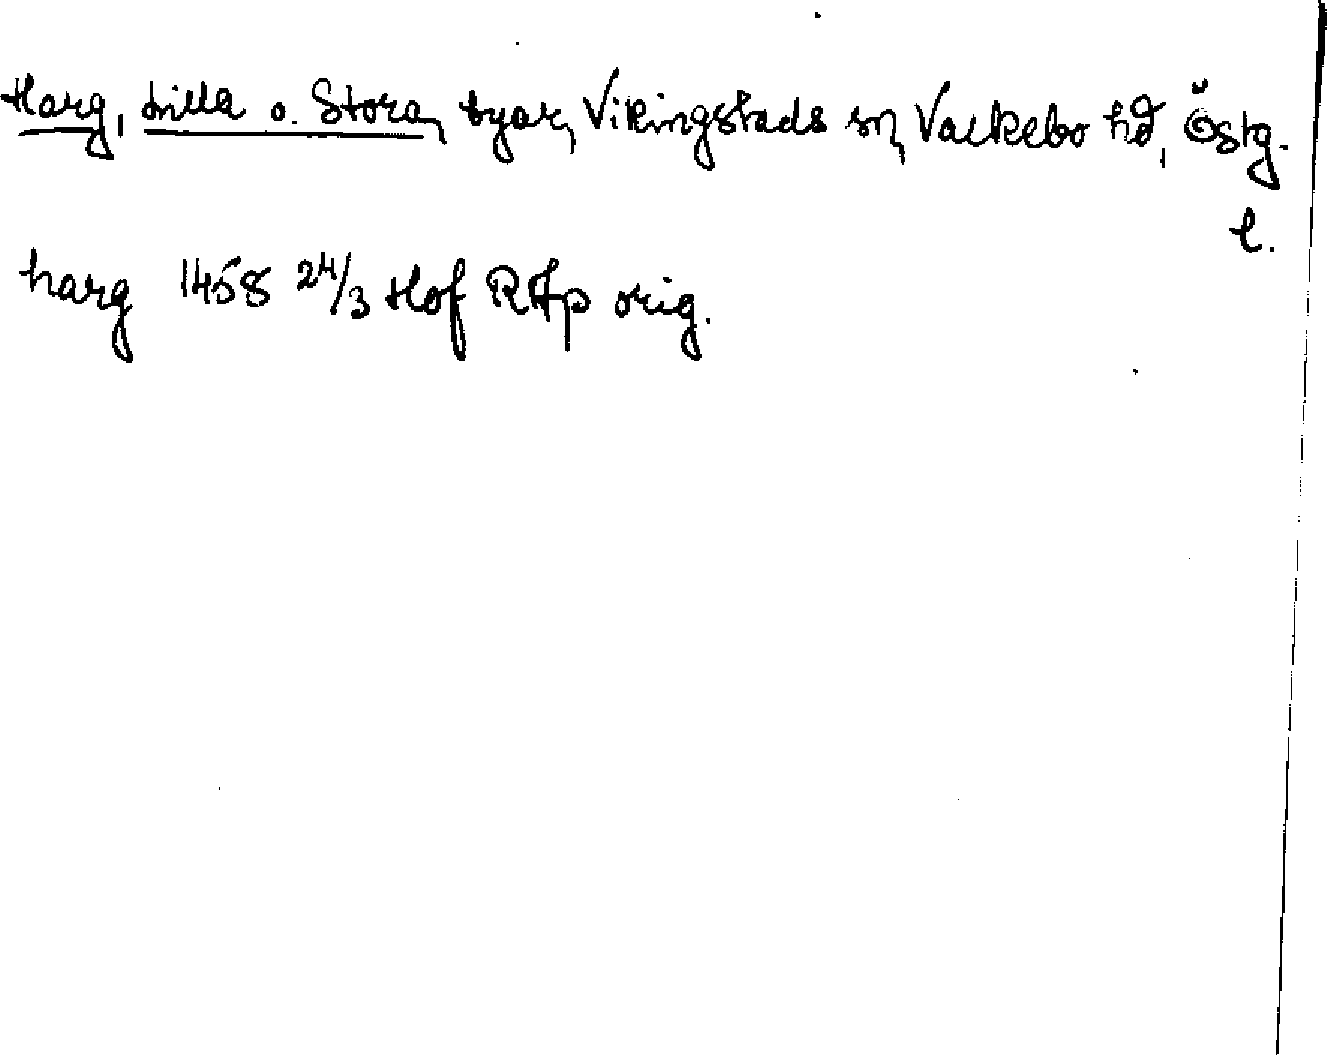 Harg, Lilla o. Stora, byar, Vikingstads sn, Valkebo hd, Östg.
l.
harg 1458 24/3 Hof RAp orig.